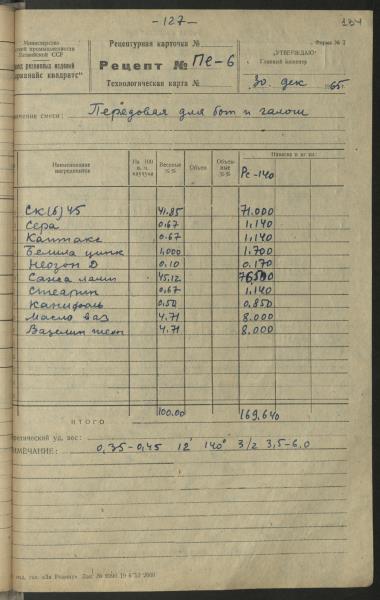 -127-
Министерство
Рецептурная карточка №
Форма № 2
промышленности
Рецепт № Пе-6
„УТВЕРЖДАЮ“
Главный инженер
резиновых изделий
квадратс“
Технологическая карта №
30 дек 65г.
смеси: Передовая для бот и галош
Наименование ингредиентов
На 100 в. ч. каучука
Весовые %%
Объем
Объемные %%
Навеска в кг на:
Рс-140
СК(б) 45 41.85 71.000
Сера 0.67 1.140
Каптакс 0.67 1.140
Белила цинк 1,000 1.700
Неозон Д 0.10 0.170
Сажа ламп 45.12
Стеарин 0,67 1.140
Канифоль 0.50 0.850
Масло ваз 4.71 8.000
Вазелин техн 4.71 8.000
100.00 169,640
ИТОГО
уд. вес:
0,35-0,45 12' 140° 3/2 3,5-6.0